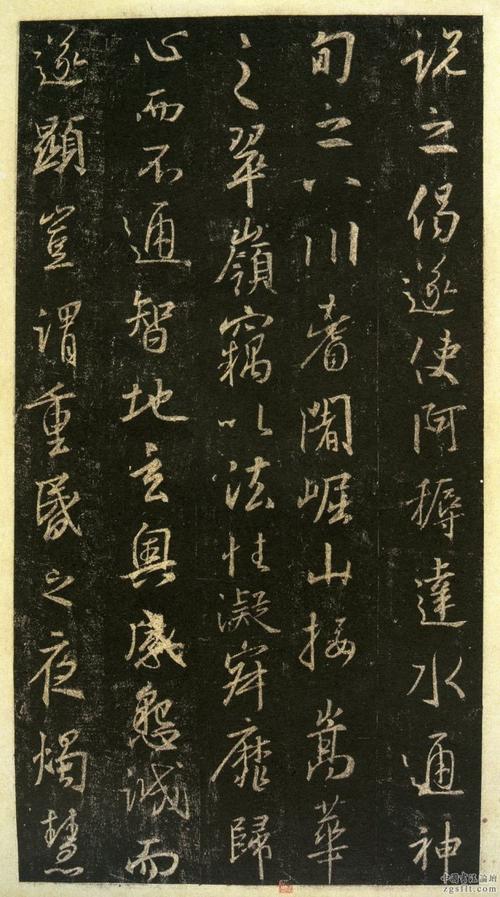 說之偈遂使阿耨達水通神
甸之八川耆闍崛山接嵩華
之翠嶺竊以法性凝寂靡歸
心而不通智地玄奧感懇誠而
遂顯豈謂重昏之夜燭慧
中國書法論壇
zgsflt.com